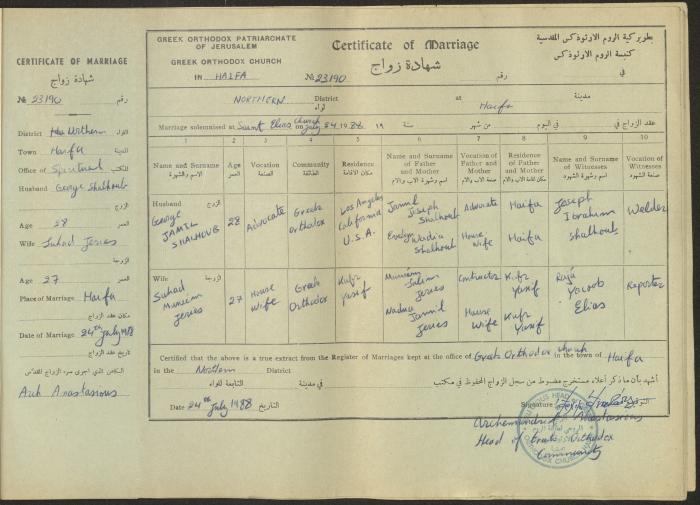 CERTIFICATE OF MARRIAGE
شهادة زواج
№ 23190 رقم
District Northern اللواء
Town Haifa المدينة
Office of Spiritual المكتب
Husband George Shalhoub
الزوج
Age 28 العمر
Wife Suhad Jeries
الزوجة
Age 27 العمر
Place of Marriage Haifa
مكان عقد الزواج
Date of Marriage 24th July 1988
تاريخ عقد الزواج
الكاهن الذي اجرى سر الزواج المقدس
Arch Anastasious
GREEK ORTHODOX PATRIARCHATE
OF JERUSALEM
GREEK ORTHODOX CHURCH
IN HAIFA
Certificate of Marriage
شهادة زواج
№ 23190 رقم
بطريركية الروم الارثوذكس المقدسية
كنيسة الروم الارثوذكس
في
NORTHERN District at Haifa مدينة
لواء
Marriage solemnised at Saint Elias Church on July 24 1988 ١٩ سنة من شهر في اليوم عقد الزواج في
1 2 3 4 5 6 7 8 9 10
Name and Surname Age Vocation Community Residence Name and Surname of Father and Mother Vocation of Father and Mother Residence of Father and Mother Name and Surname of Witnesses Vocation of Witnesses
الاسم والشهرة العمر الصنعة الطائفة مكان الاقامة اسم وشهرة الاب والام صنعة الاب والام مكان اقامة الاب والام اسم وشهرة الشهود صنعة الشهود
Husband الزوج
George JAMIL SHALHOUB 28 Advocate Greek Orthodox Los Angeles California U.S.A. Jamil Joseph Shalhoub Advocate Haifa Joseph Ibrahim Shalhoub Welder
Evelyn Wadia Shalhoub House Wife Haifa
Wife الزوجة
Suhad Muneim Jeries 27 House Wife Greek Orthodox Kufr Yasif Muneim Salem Jeries Contractor Kufr Yasif Raja Yacoob Elias Reporter
Nadua Jamil Jeries House Wife Kufr Yasif
Certified that the above is a true extract from the Register of Marriages kept at the office of Greek Orthodox church in the town of Haifa
in the Northern District
أشهد بأن ما ذكر أعلاه مستخرج مضبوط من سجل الزواج المحفوظ في مكتب في مدينة التابعة للواء
Date 24th July 1988 التاريخ
Signature
Archemandrit Anastasious
Head of Greek Orthodox
Community